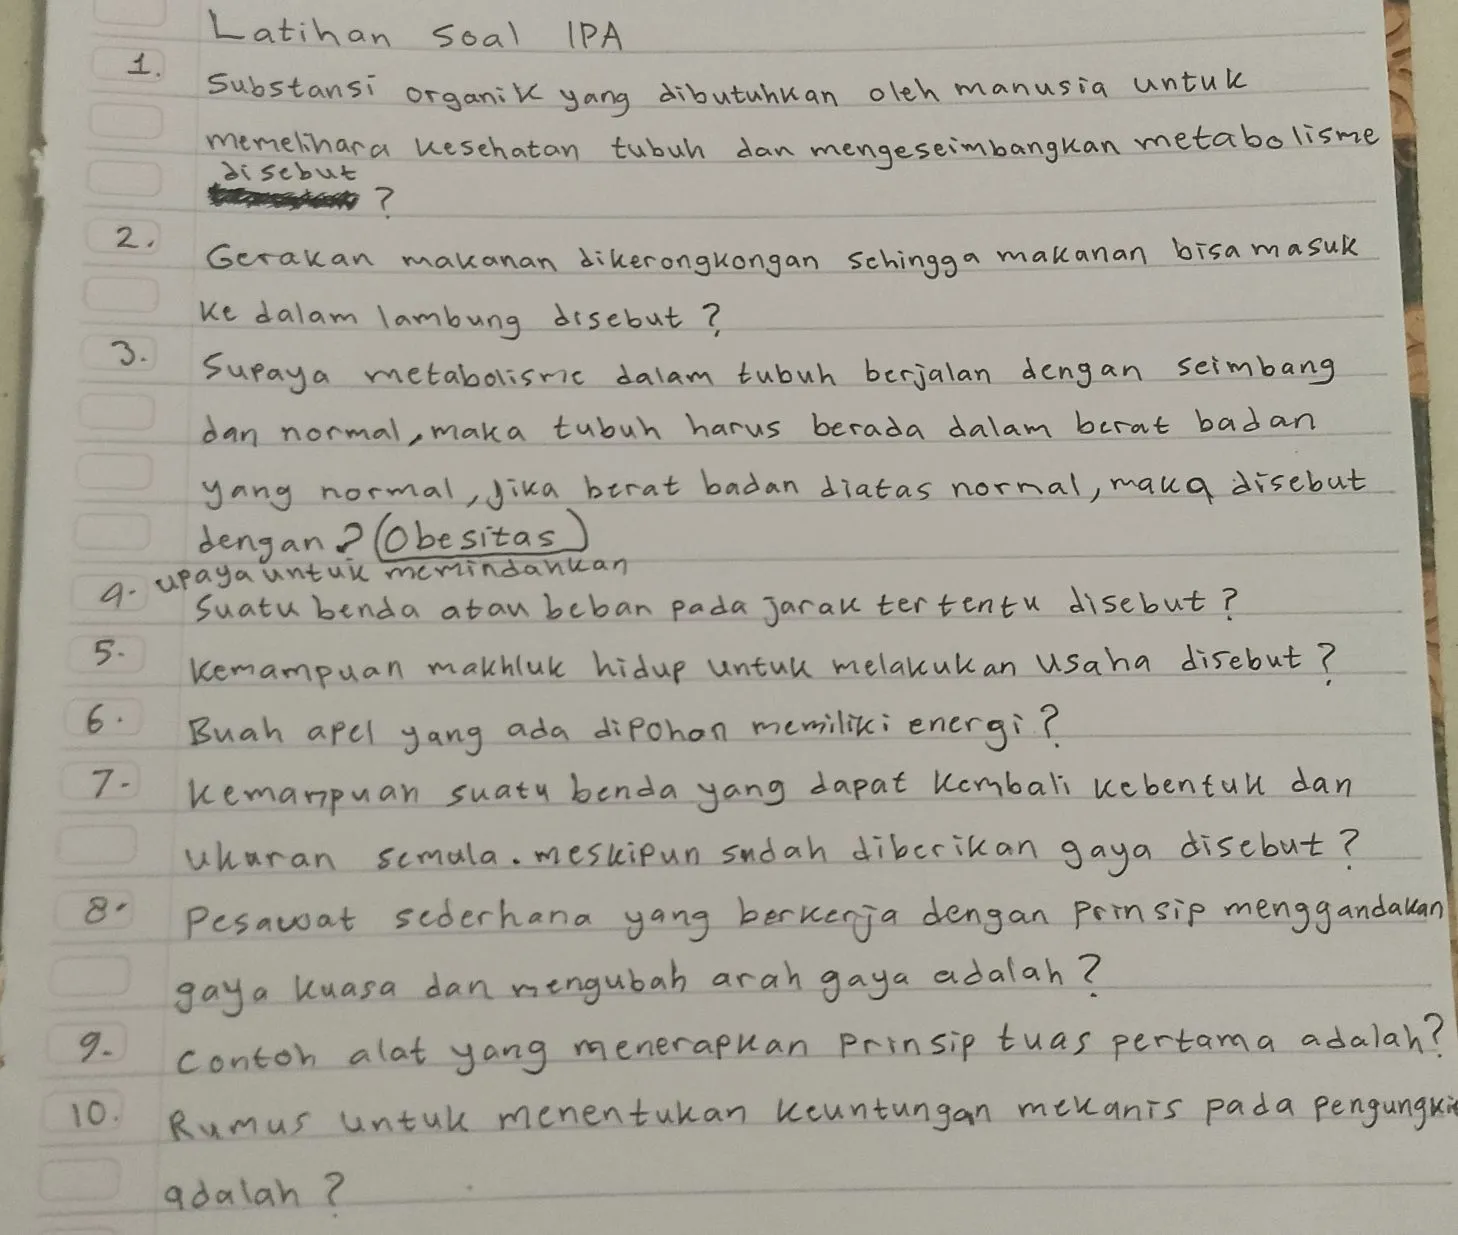 Latihan soal IPA
1. Substansi organik yang dibutuhkan oleh manusia untuk
memelihara kesehatan tubuh dan mengeseimbangkan metabolisme
disebut
?
2. Gerakan makanan dikerongkongan sehingga makanan bisa masuk
ke dalam lambung disebut ?
3. Supaya metabolisme dalam tubuh berjalan dengan seimbang
dan normal, maka tubuh harus berada dalam berat badan
yang normal, jika berat badan diatas normal, maka disebut
dengan ? (Obesitas)
4. upaya untuk memindahkan
suatu benda atau beban pada jarak tertentu disebut ?
5. kemampuan makhluk hidup untuk melakukan usaha disebut ?
6. Buah apel yang ada dipohon memiliki energi ?
7. kemampuan suatu benda yang dapat kembali kebentuk dan
ukuran semula. meskipun sudah diberikan gaya disebut ?
8. Pesawat sederhana yang berkerja dengan prinsip menggandakan
gaya kuasa dan mengubah arah gaya adalah ?
9. contoh alat yang menerapkan prinsip tuas pertama adalah ?
10. Rumus untuk menentukan keuntungan mekanis pada
adalah ?